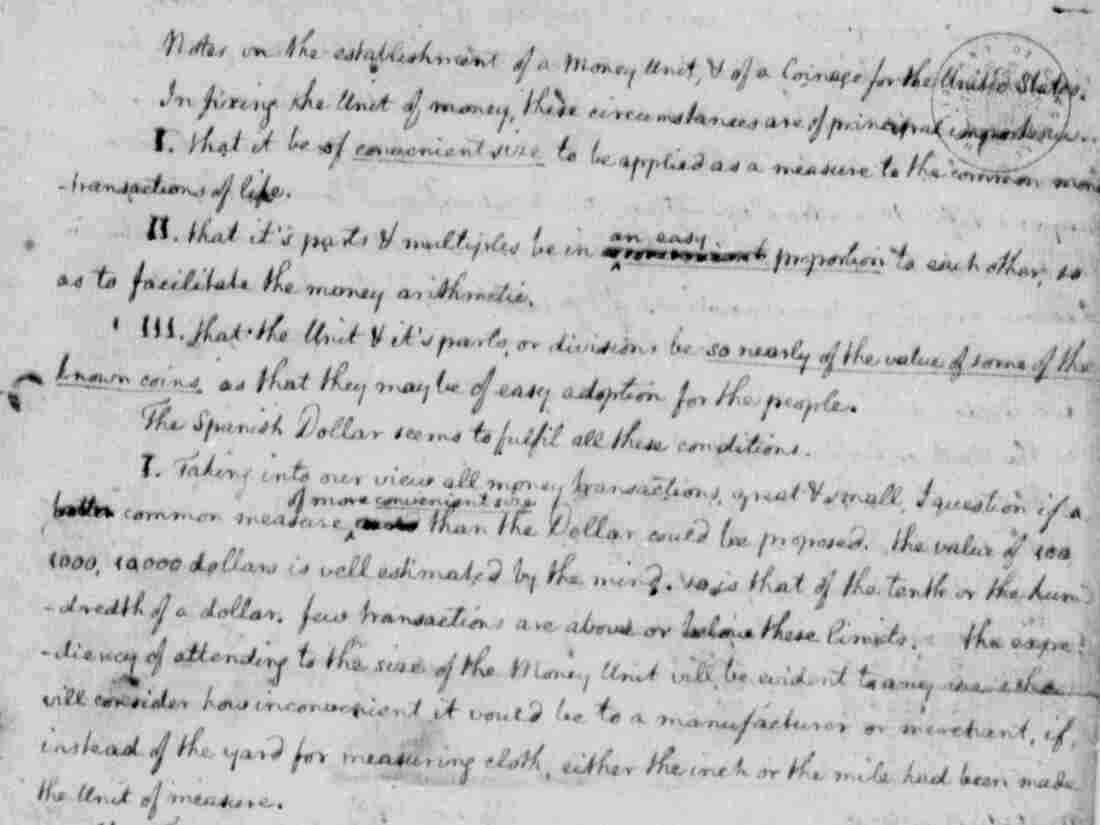 Notes on the establishment of a Money Unit, & of a Coinage for the United States.
In fixing the Unit of money, these circumstances are of principal importance.
I. that it be of convenient size to be applied as a measure to the common mon
-transactions of life.
II. that it's parts & multiples be in an easy proportion to each other, so
as to facilitate the money arithmetic.
III. that the Unit & it's parts, or divisions be so nearly of the value of some of the
known coins, as that they may be of easy adoption for the people.
The Spanish Dollar seems to fulfil all these conditions.
I. Taking into our view all money transactions, great & small, I question if a
common measure of more convenient size than the Dollar could be proposed. the value of 100
1000, 10,000 dollars is well estimated by the mind. so is that of the tenth or the hun
-dredth of a dollar. few transactions are above or below these limits. the expe
-diency of attending to the size of the Money Unit will be evident to any one who
will consider how inconvenient it would be to a manufacturer or merchant, if,
instead of the yard for measuring cloth, either the inch or the mile had been made
the Unit of measure.